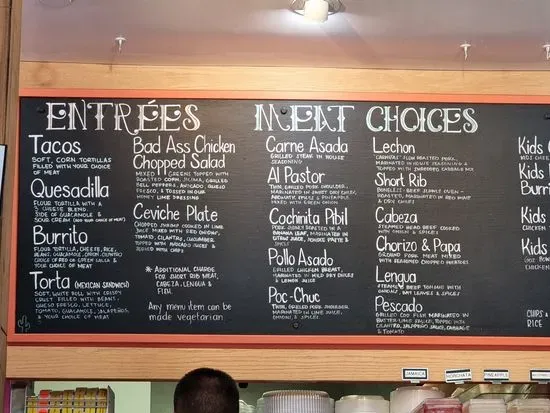 ENTRÉES
Tacos
SOFT, CORN TORTILLAS
FILLED WITH YOUR CHOICE
OF MEAT
Quesadilla
FLOUR TORTILLA WITH A
3 CHEESE BLEND.
SIDE OF GUACAMOLE &
SOUR CREAM (ADD YOUR CHOICE OF MEAT)
Burrito
FLOUR TORTILLA, CHEESE, RICE,
BEANS, GUACAMOLE, ONION, CILANTRO
CHOICE OF RED OR GREEN SALSA &
YOUR CHOICE OF MEAT
Torta (MEXICAN SANDWICH)
SOFT WHITE ROLL WITH CRISPY
CRUST FILLED WITH BEANS,
QUESO FRESCO, LETTUCE,
TOMATO, GUACAMOLE, JALAPEÑOS,
& YOUR CHOICE OF MEAT
Bad Ass Chicken
Chopped Salad
MIXED GREENS TOPPED WITH
ROASTED CORN, JICAMA, GRILLED
BELL PEPPERS, AVOCADO, QUESO
FRESCO, & TOSSED IN OUR
HONEY LIME DRESSING
Ceviche Plate
CHOPPED SHRIMP COOKED IN LIME
JUICE MIXED WITH RED ONION,
TOMATO, CILANTRO, CUCUMBER
TOPPED WITH AVOCADO SLICES &
SERVED WITH CHIPS
* ADDITIONAL CHARGE
FOR SHORT RIB MEAT,
CABEZA, LENGUA &
FISH.
Any menu item can be
made vegetarian
MEAT CHOICES
Carne Asada
GRILLED STEAK IN HOUSE
SEASONING
Al Pastor
THIN, GRILLED PORK SHOULDER,
MARINATED IN SWEET DRY CHILES,
AROMATIC SPICES & PINEAPPLE.
MIXED WITH GREEN ONION
Cochinita Pibil
PORK SLOWLY ROASTED IN A
BANANA LEAF, MARINATED IN
CITRUS JUICE, ACHIOTE PASTE &
SPICES
Pollo Asado
GRILLED CHICKEN BREAST,
MARINATED IN MILD DRY CHILES
& LEMON JUICE
Poc-Chuc
THIN, GRILLED PORK SHOULDER,
MARINATED IN LIME JUICE,
ONIONS, & SPICES
Lechon
"CARNITAS" SLOW ROASTED PORK,
MARINATED IN HOUSE SEASONING &
TOPPED WITH SHREDDED CABBAGE MIX
Short Rib
BONELESS BEEF SIMPLE OVEN-
ROASTED, MARINATED IN RED WINE
& DRY CHILES
Cabeza
STEAMED BEEF COOKED
WITH ONION & SPICES
Chorizo & Papa
GROUND PORK MEAT MIXED
WITH ROASTED CHOPPED POTATOES
Lengua
STEAMED BEEF TONGUE WITH
ONIONS, BAY LEAVES & SPICES
Pescado
GRILLED COD FISH MARINATED IN
BUTTER LIME SAUCE, TOPPED WITH
CILANTRO, JALAPEÑO SAUCE, CABBAGE
& TOMATO
Kids
Burri
Kids
Kids
Kids
CHIPS &
RICE
JAMAICA
HORCHATA
PINEAPPLE